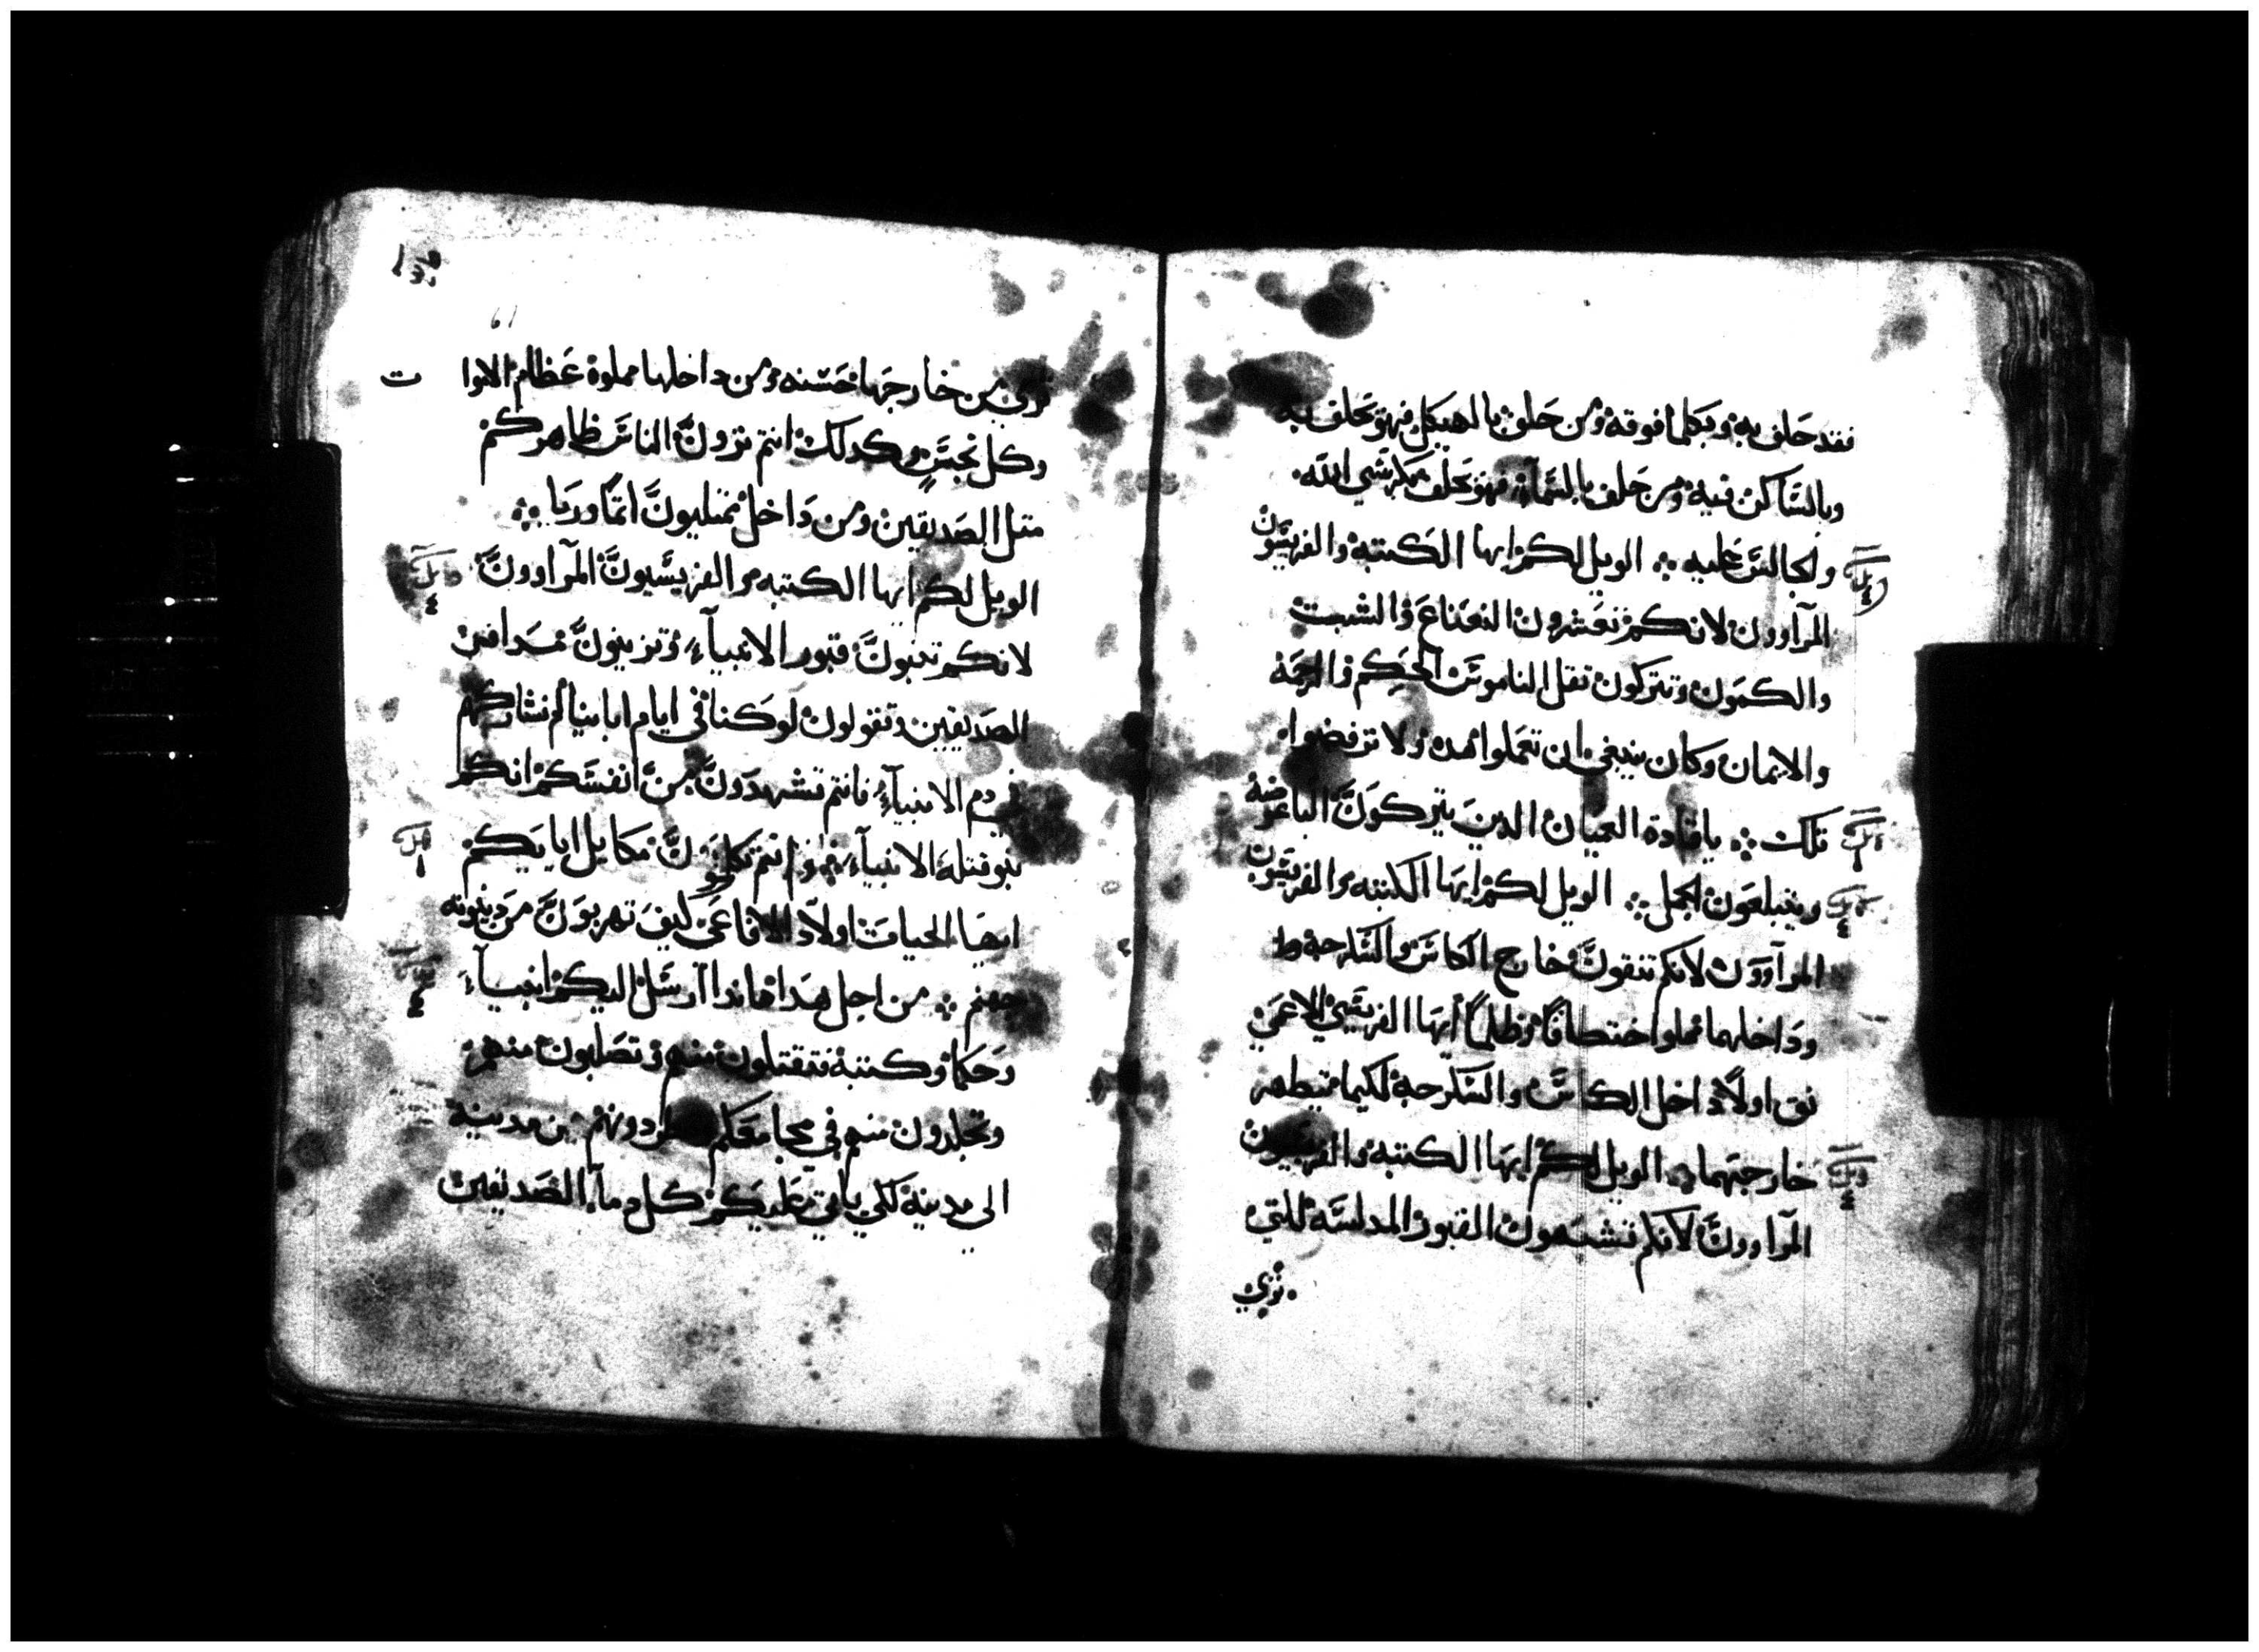 فقد حلف به وبكلما فوقه ومن حلف بالهيكل فهو يحلف به
وبالساكن فيه ومن حلف بالسماء فهو يحلف بكرسي الله
والجالس عليه ∴ الويل لكم ايها الكتبه والفريسيون
المرآوون لانكم تعشرون النعناع والشبت
والكمون وتتركون ثقل الناموس الحكم والرحمة
والايمان وكان ينبغي ان تعملوا هده ولا ترفضوا
تلك ∴ ياقادة العميان الدين يتركون الباعوضة
ويتبلعون الجمل ∴ الويل لكم ايها الكتبه والفريسيون
المرآوون لانكم تنقون خارج الكاس والسكرجة
وداخلهما مملوا اختطافا وظلما أيها الفريسي الاعمى
نق اولا داخل الكاس والسكرجة لكيما يتطهر
خارجهما ∴ الويل لكم ايها الكتبة والفريسيون
المرآوون لانكم تشبهون القبور المدلسة اللتي
ترى
ترى من خارجها حسنه ومن داخلها مملوة عظام الاموات
وكل نجس وكدلك انتم ترون الناس ظاهركم
متل الصديقين ومن داخل ممتليون اتما وريا ∴
الويل لكم ايها الكتبه والفريسيون المرآوون
لانكم تبنون قبور الانبيآء وتزينون مدافن
الصديقين وتقولون لو كنا في ايام ابائنا لم نشاركهم
في دم الانبيآء فانتم تشهدون من انفسكم انكم
بنو قتلة الانبيآء وانتم تكملون مكايل ابايكم
ايها الحيات اولاد الافاعى كيف تهربون من دينونة
جهنم ∴ من اجل هدا هاندا ارسل اليكم انبيآء
وحكما وكتبة فتقتلون منهم وتصلبون منهم
وتجلدون منهم في مجامعكم وتطردونهم من مدينة
الى مدينة لكي ياتي عليكم كل دمآ الصديقين